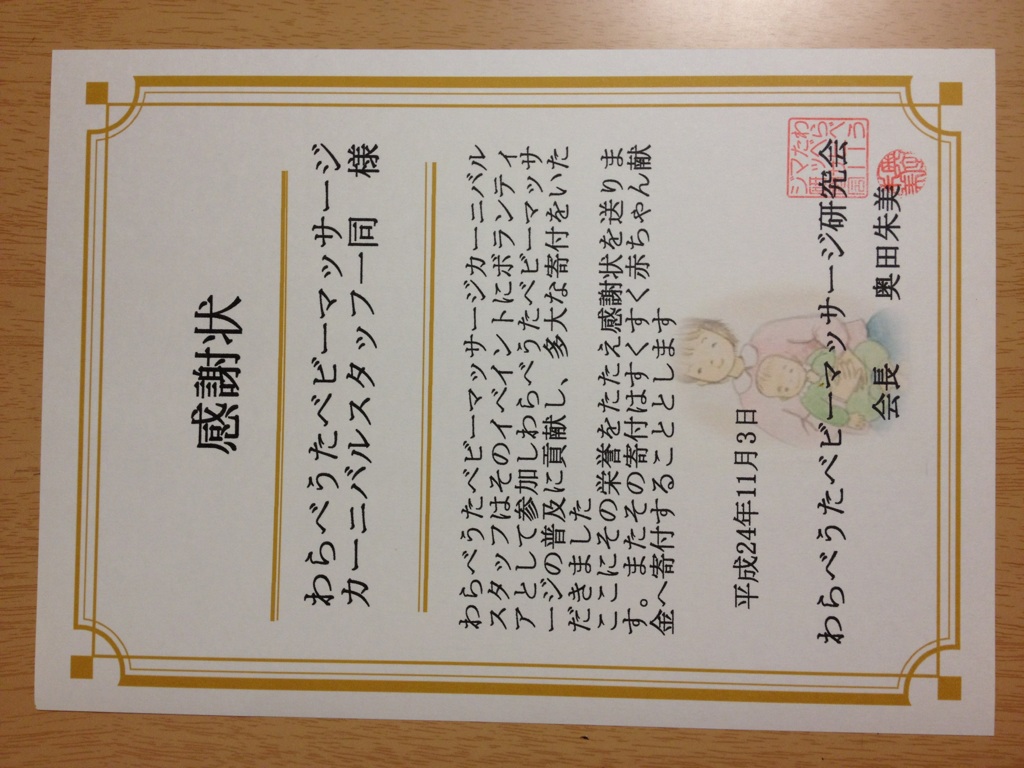 感謝状
わらべうたベビーマッサージ
カーニバルスタッフ一同 様
わらべうたベビーマッサージカーニバル
スタッフはそのイベイントにボランティ
アとして参加しわらべうたベビーマッサ
ージの普及に貢献し、多大な寄付をいた
だきました
ここにその栄誉をたたえ感謝状を送りま
す。またその寄付はすくすく赤ちゃん献
金へ寄付することとします
平成24年11月3日
わらべうたベビーマッサージ研究会
会長 奥田朱美